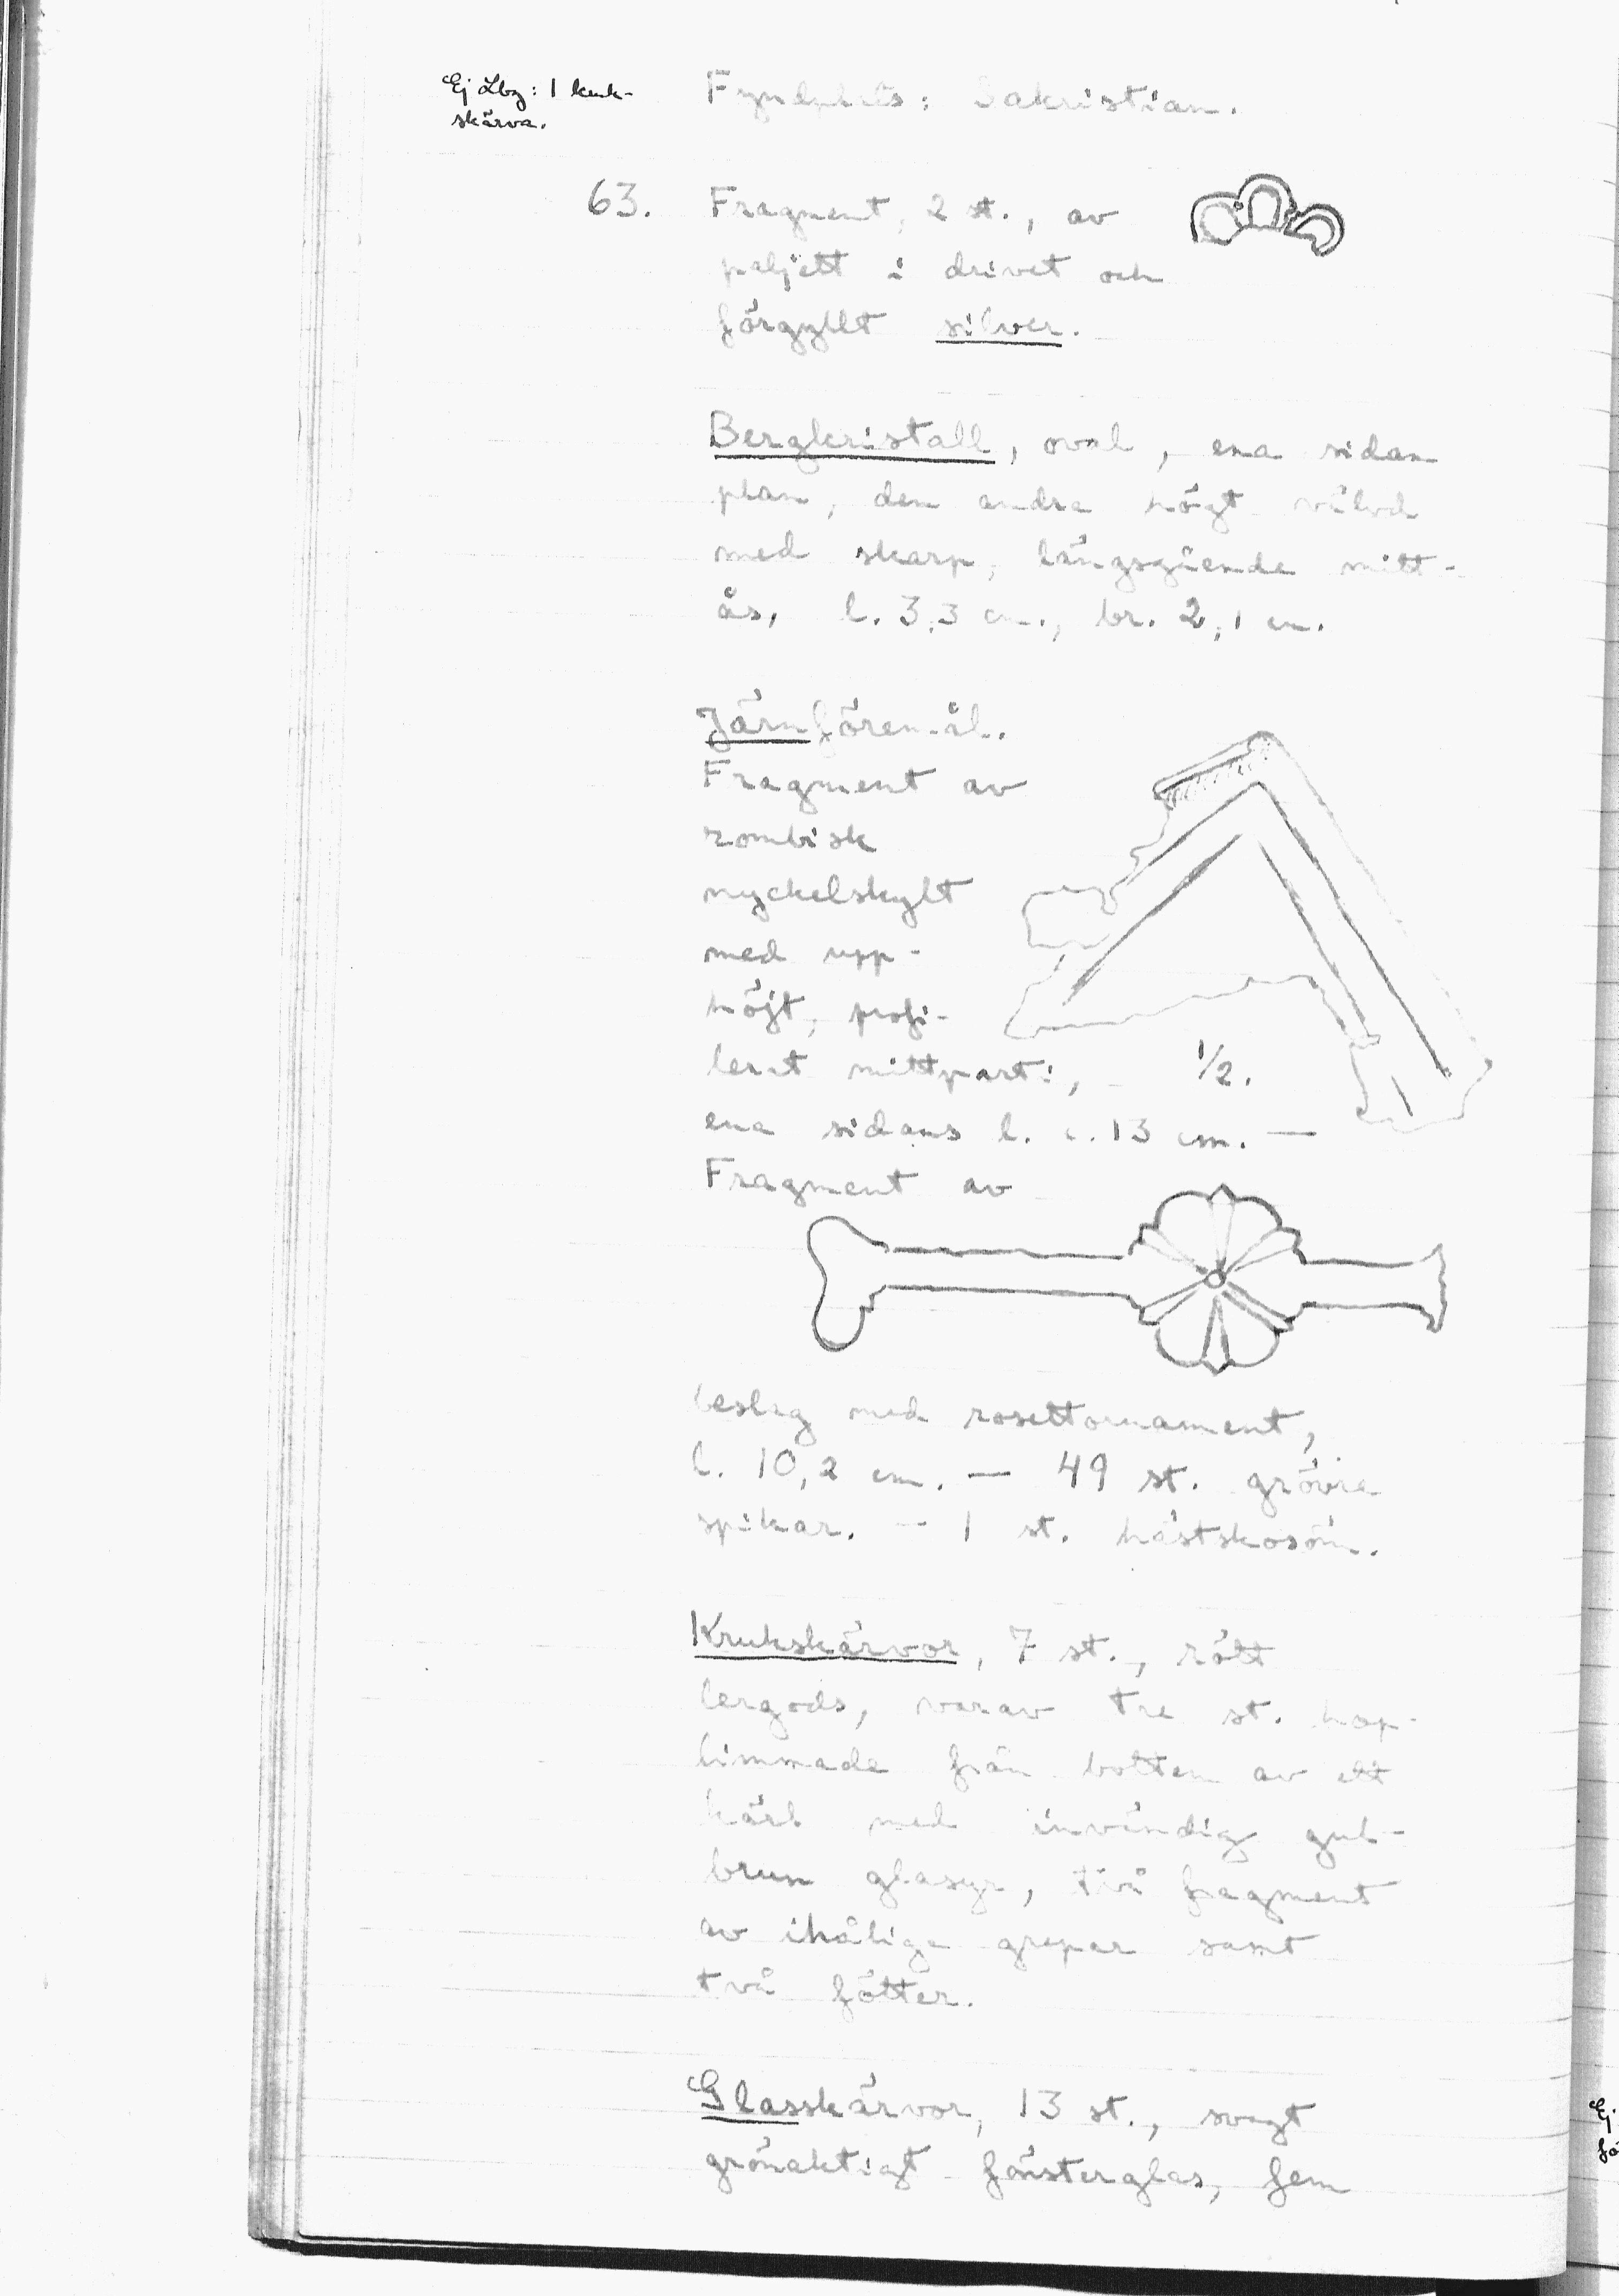 Ej Lbg: 1 kruk-
skärva.
Fyndplats: Sakristian.
63. Fragment, 2 st., av
paljett i drivet och
förgyllt silver.
Bergkristall, oval, ena sidan
plan, den andra högt välvd
med skarp, längsgående mitt-
ås, l. 3,3 cm., br. 2,1 cm.
Järnföremål.
Fragment av
rombisk
nyckelskylt
med upp-
höjt, profi-
lerat mittparti, 1/2.
ena sidans l. c. 13 cm. —
Fragment av
beslag med rosettornament,
l. 10,2 cm. — 49 st. grövre
spikar. — 1 st. hästskosöm.
Krukskärvor, 7 st., rött
lergods, varav tre st. hop-
limmade från botten av ett
kärl med invändig gul-
brun glasyr, två fragment
av ihåliga grepar samt
två fötter.
Glasskärvor, 13 st., svagt
grönaktigt fönsterglas, fem